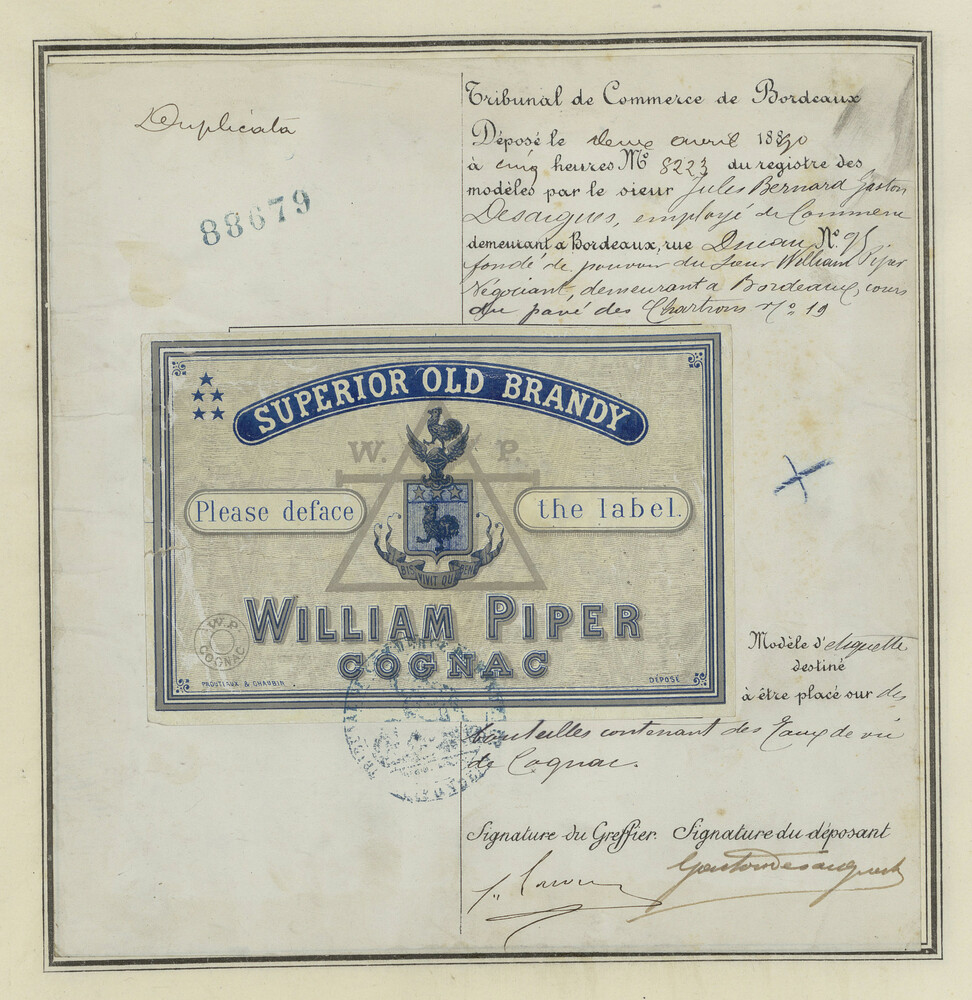 Duplicata
88679
Tribunal de Commerce de Bordeaux
Déposé le deux avril 1890
à cinq heures N° 8223 du registre des
modèles par le sieur Jules Bernard Gaston
employé de Commerce
demeurant à Bordeaux, rue N° 95
fondé de pouvoir du Sieur William Piper
Négociant, demeurant à Bordeaux, cours
du pavé des Chartrons N° 19
SUPERIOR OLD BRANDY
W. P.
Please deface the label.
BIS VIVIT QUI BENE
WILLIAM PIPER
COGNAC
W.P.
COGNAC
PROUTEAUX & CHASBIR
DÉPOSÉ
Modèle d'étiquette
destiné
à être placé sur des
bouteilles contenant des Eaux de vie
de Cognac.
Signature du Greffier. Signature du déposant